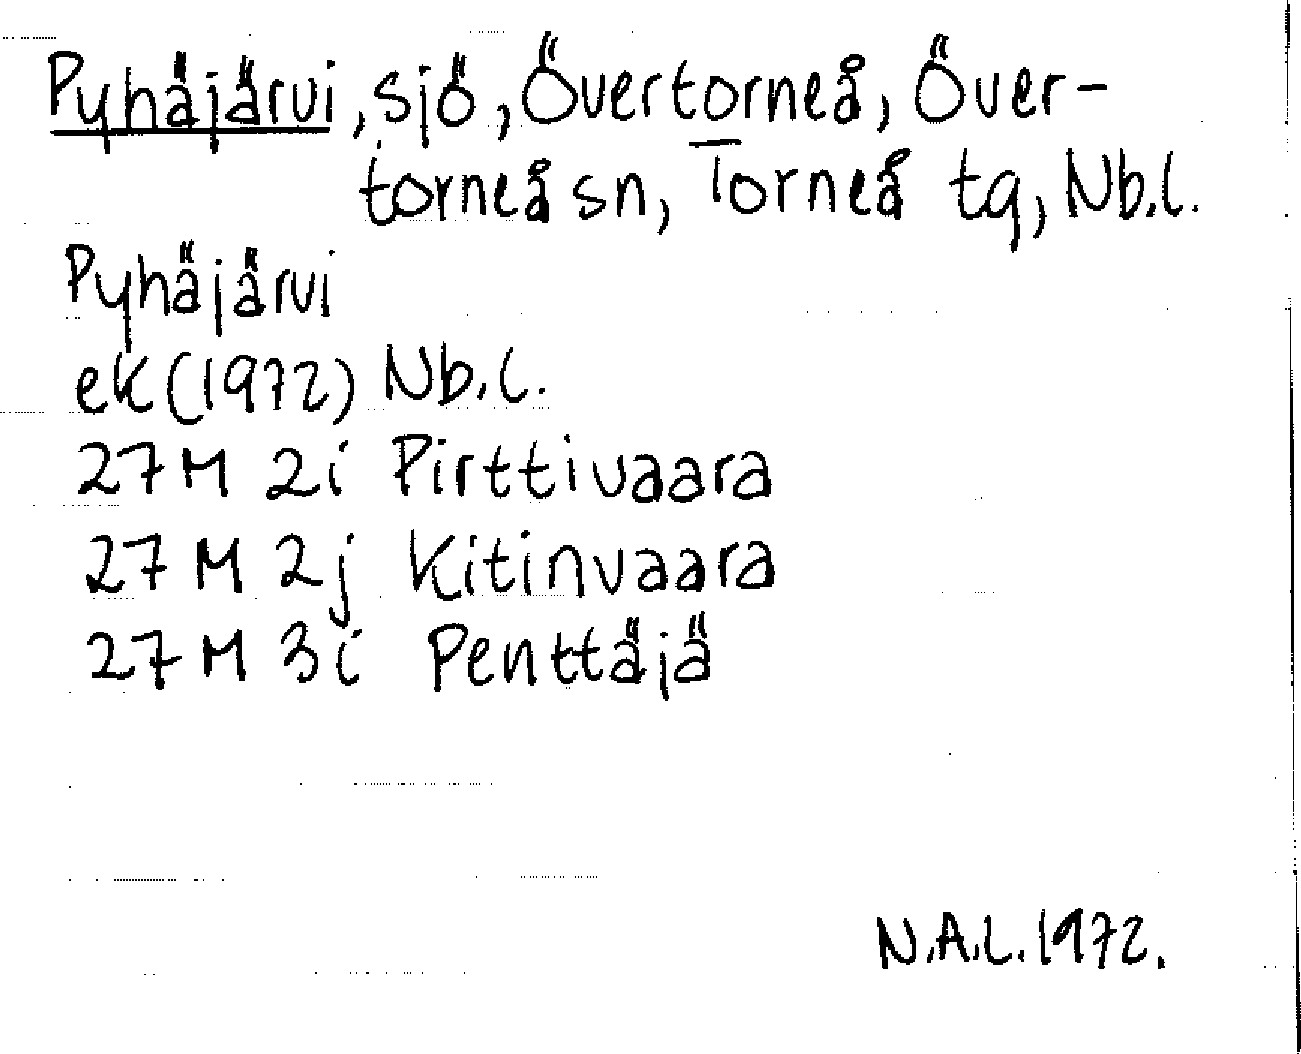 Pyhäjärvi, sjö, Övertorneå, Över-
torneå sn, Torneå tg, Nb.l.
Pyhäjärvi
ek (1972) Nb.l.
27 M 2i Pirttivaara
27 M 2j Kitinvaara
27 M 3i Penttäjä
N.A.L. 1972.